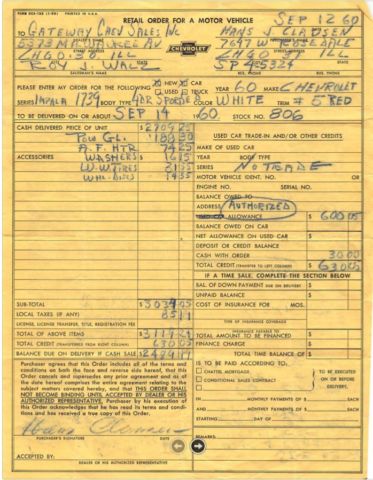 FORM
RETAIL ORDER FOR A MOTOR VEHICLE
SEP 12 60
TO GATEWAY CHEV SALES INC
HANS J CLAUSEN
CHEVROLET
7647 W ROSEDALE
CHGO 30 ILL
CHGO 31 ILL
ROY J. WALZ
SP 45324
SALESMAN'S NAME
RES. PHONE
BUS. PHONE
PLEASE ENTER MY ORDER FOR THE FOLLOWING
NEW
CAR
USED
TRUCK
YEAR 60 MAKE CHEVROLET
SERIES IMPALA 1739 BODY TYPE 4DR SPORT SD COLOR WHITE TRIM # 5 RED
TO BE DELIVERED ON OR ABOUT SEP 14 1960 STOCK NO. 806
CASH DELIVERED PRICE OF UNIT $ 2704 25
POW GL. 188 30
USED CAR TRADE-IN AND/OR OTHER CREDITS
A.F. HTR 74 25
MAKE OF USED CAR
ACCESSORIES WASHERS
YEAR BODY TYPE
W.W. TIRES
SERIES NO TRADE
MOTOR VEHICLE IDENT. NO. OR
ENGINE NO. SERIAL NO.
BALANCE OWED TO
ADDRESS AUTHORIZED
ALLOWANCE $ 600 05
BALANCE OWED ON CAR
NET ALLOWANCE ON USED CAR $
DEPOSIT OR CREDIT BALANCE
CASH WITH ORDER 30 00
TOTAL CREDIT (TRANSFER TO LEFT COLUMN) $ 630 05
IF A TIME SALE, COMPLETE THE SECTION BELOW
BAL. OF DOWN PAYMENT DUE ON DELIVERY $
UNPAID BALANCE $
SUB-TOTAL $ 3034 05
COST OF INSURANCE FOR MOS.
LOCAL TAXES (IF ANY) 85 11
TYPE OF INSURANCE COVERAGE
LICENSE, LICENSE TRANSFER, TITLE, REGISTRATION FEE
INSURANCE PAYABLE TO
TOTAL OF ABOVE ITEMS
TOTAL AMOUNT TO BE FINANCED
TOTAL CREDIT (TRANSFERRED FROM RIGHT COLUMN) 630 05
FINANCE CHARGE
BALANCE DUE ON DELIVERY IF CASH SALE
TOTAL TIME BALANCE OF $
Purchaser agrees that this Order includes all of the terms and
conditions on both the face and reverse side hereof, that this
Order cancels and supersedes any prior agreement and as of
the date hereof comprises the entire agreement relating to the
subject matters covered hereby, and that THIS ORDER SHALL
NOT BECOME BINDING UNTIL ACCEPTED BY DEALER OR HIS
AUTHORIZED REPRESENTATIVE. Purchaser by his execution of
this Order acknowledges that he has read its terms and conditions
and has received a true copy of this Order.
IS TO BE PAID ACCORDING TO:
CHATTEL MORTGAGE
CONDITIONAL SALES CONTRACT
TO BE EXECUTED
ON OR BEFORE
DELIVERY.
IN MONTHLY PAYMENTS OF $ EACH
AND MONTHLY PAYMENTS OF $ EACH
STARTING DAY OF
PURCHASER'S SIGNATURE
DATE
REMARKS:
ACCEPTED BY:
DEALER OR HIS AUTHORIZED REPRESENTATIVE